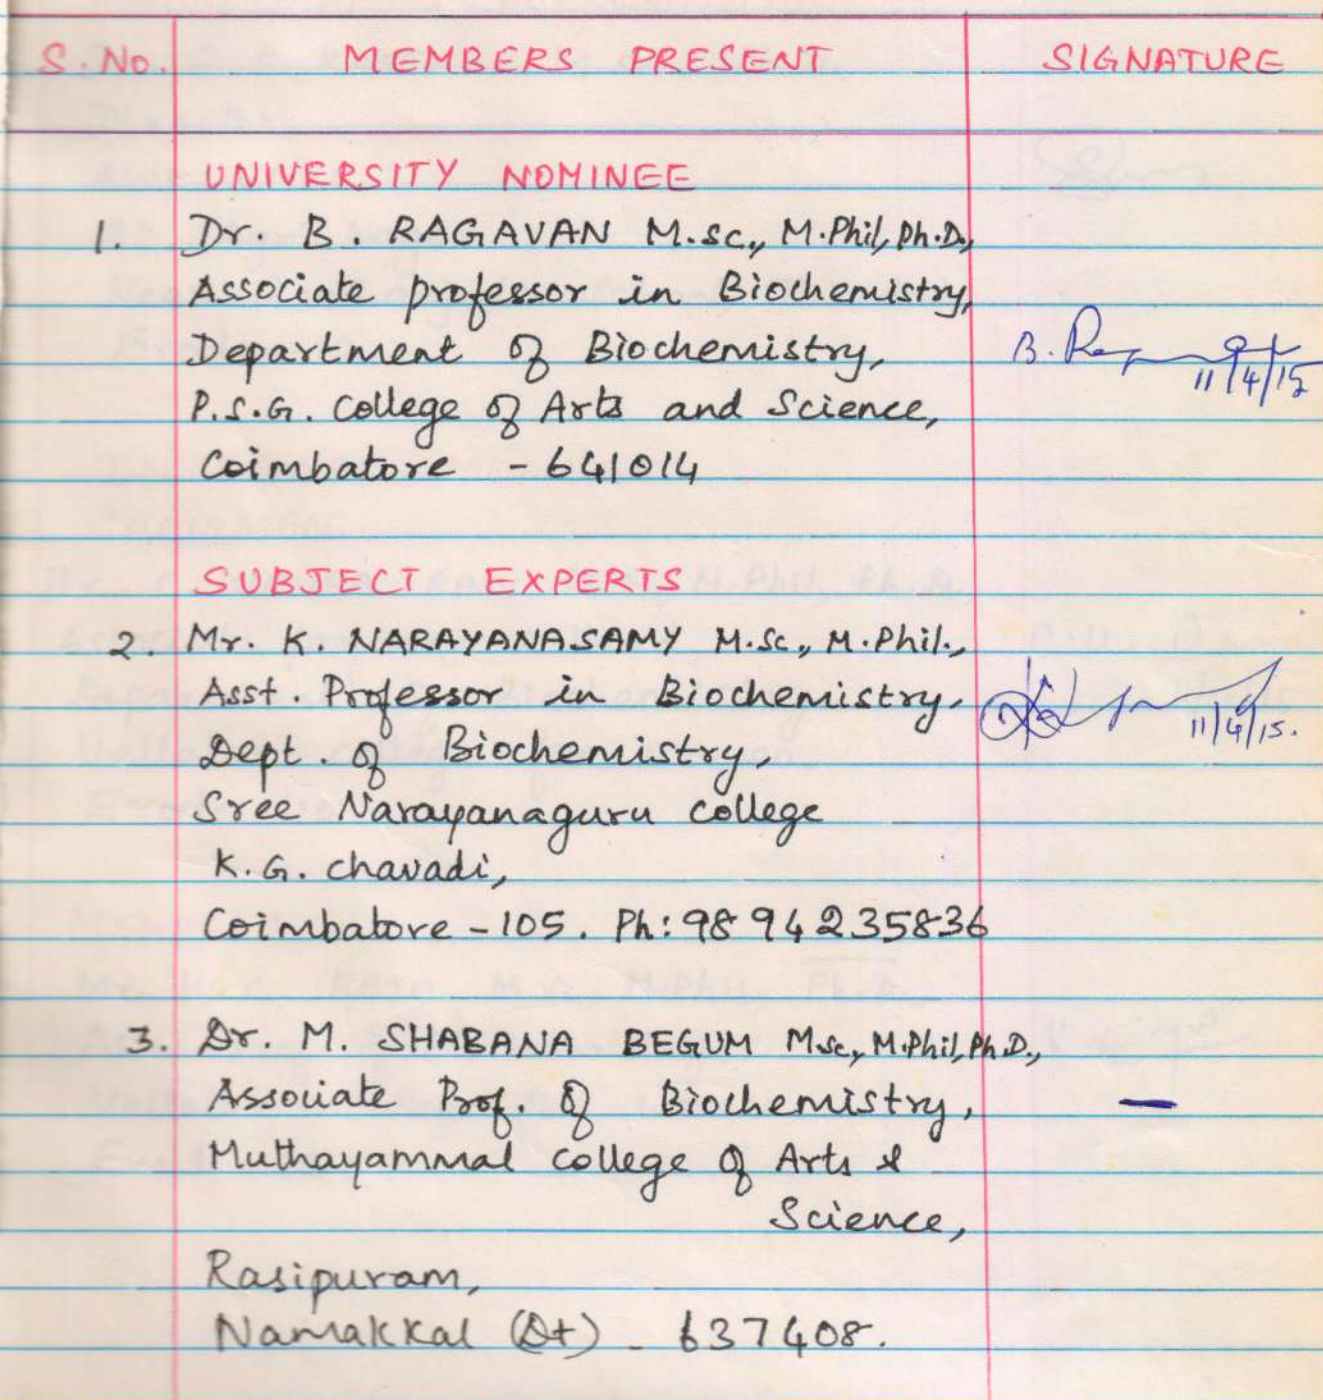 S.No. MEMBERS PRESENT SIGNATURE
UNIVERSITY NOMINEE
1. Dr. B. RAGAVAN M.sc., M.Phil, Ph.D.,
Associate professor in Biochemistry,
Department of Biochemistry,
B. Rag
11/4/15
P.S.G. College of Arts and Science,
Coimbatore - 641014
SUBJECT EXPERTS
2. Mr. K. NARAYANASAMY M.Sc., M.Phil.,
Asst. Professor in Biochemistry,
11/4/15.
Dept. of Biochemistry,
Sree Narayanaguru college
K.G. chavadi,
Coimbatore - 105. Ph: 9894235836
3. Dr. M. SHABANA BEGUM M.sc., M.Phil, Ph.D.,
Associate Prof. of Biochemistry, —
Muthayammal college of Arts &
Science,
Rasipuram,
Namakkal (Dt) - 637408.